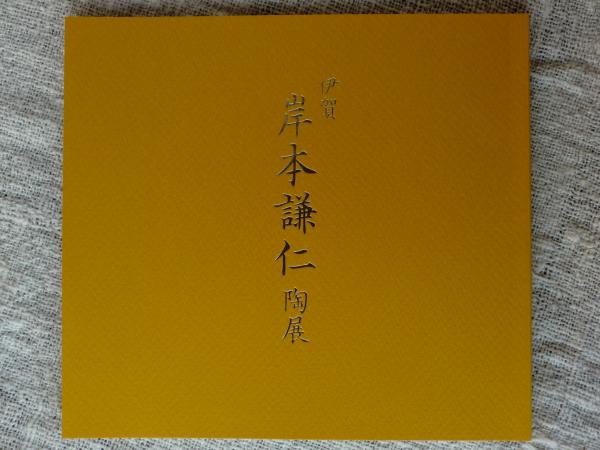 伊賀
岸本謙仁 陶展